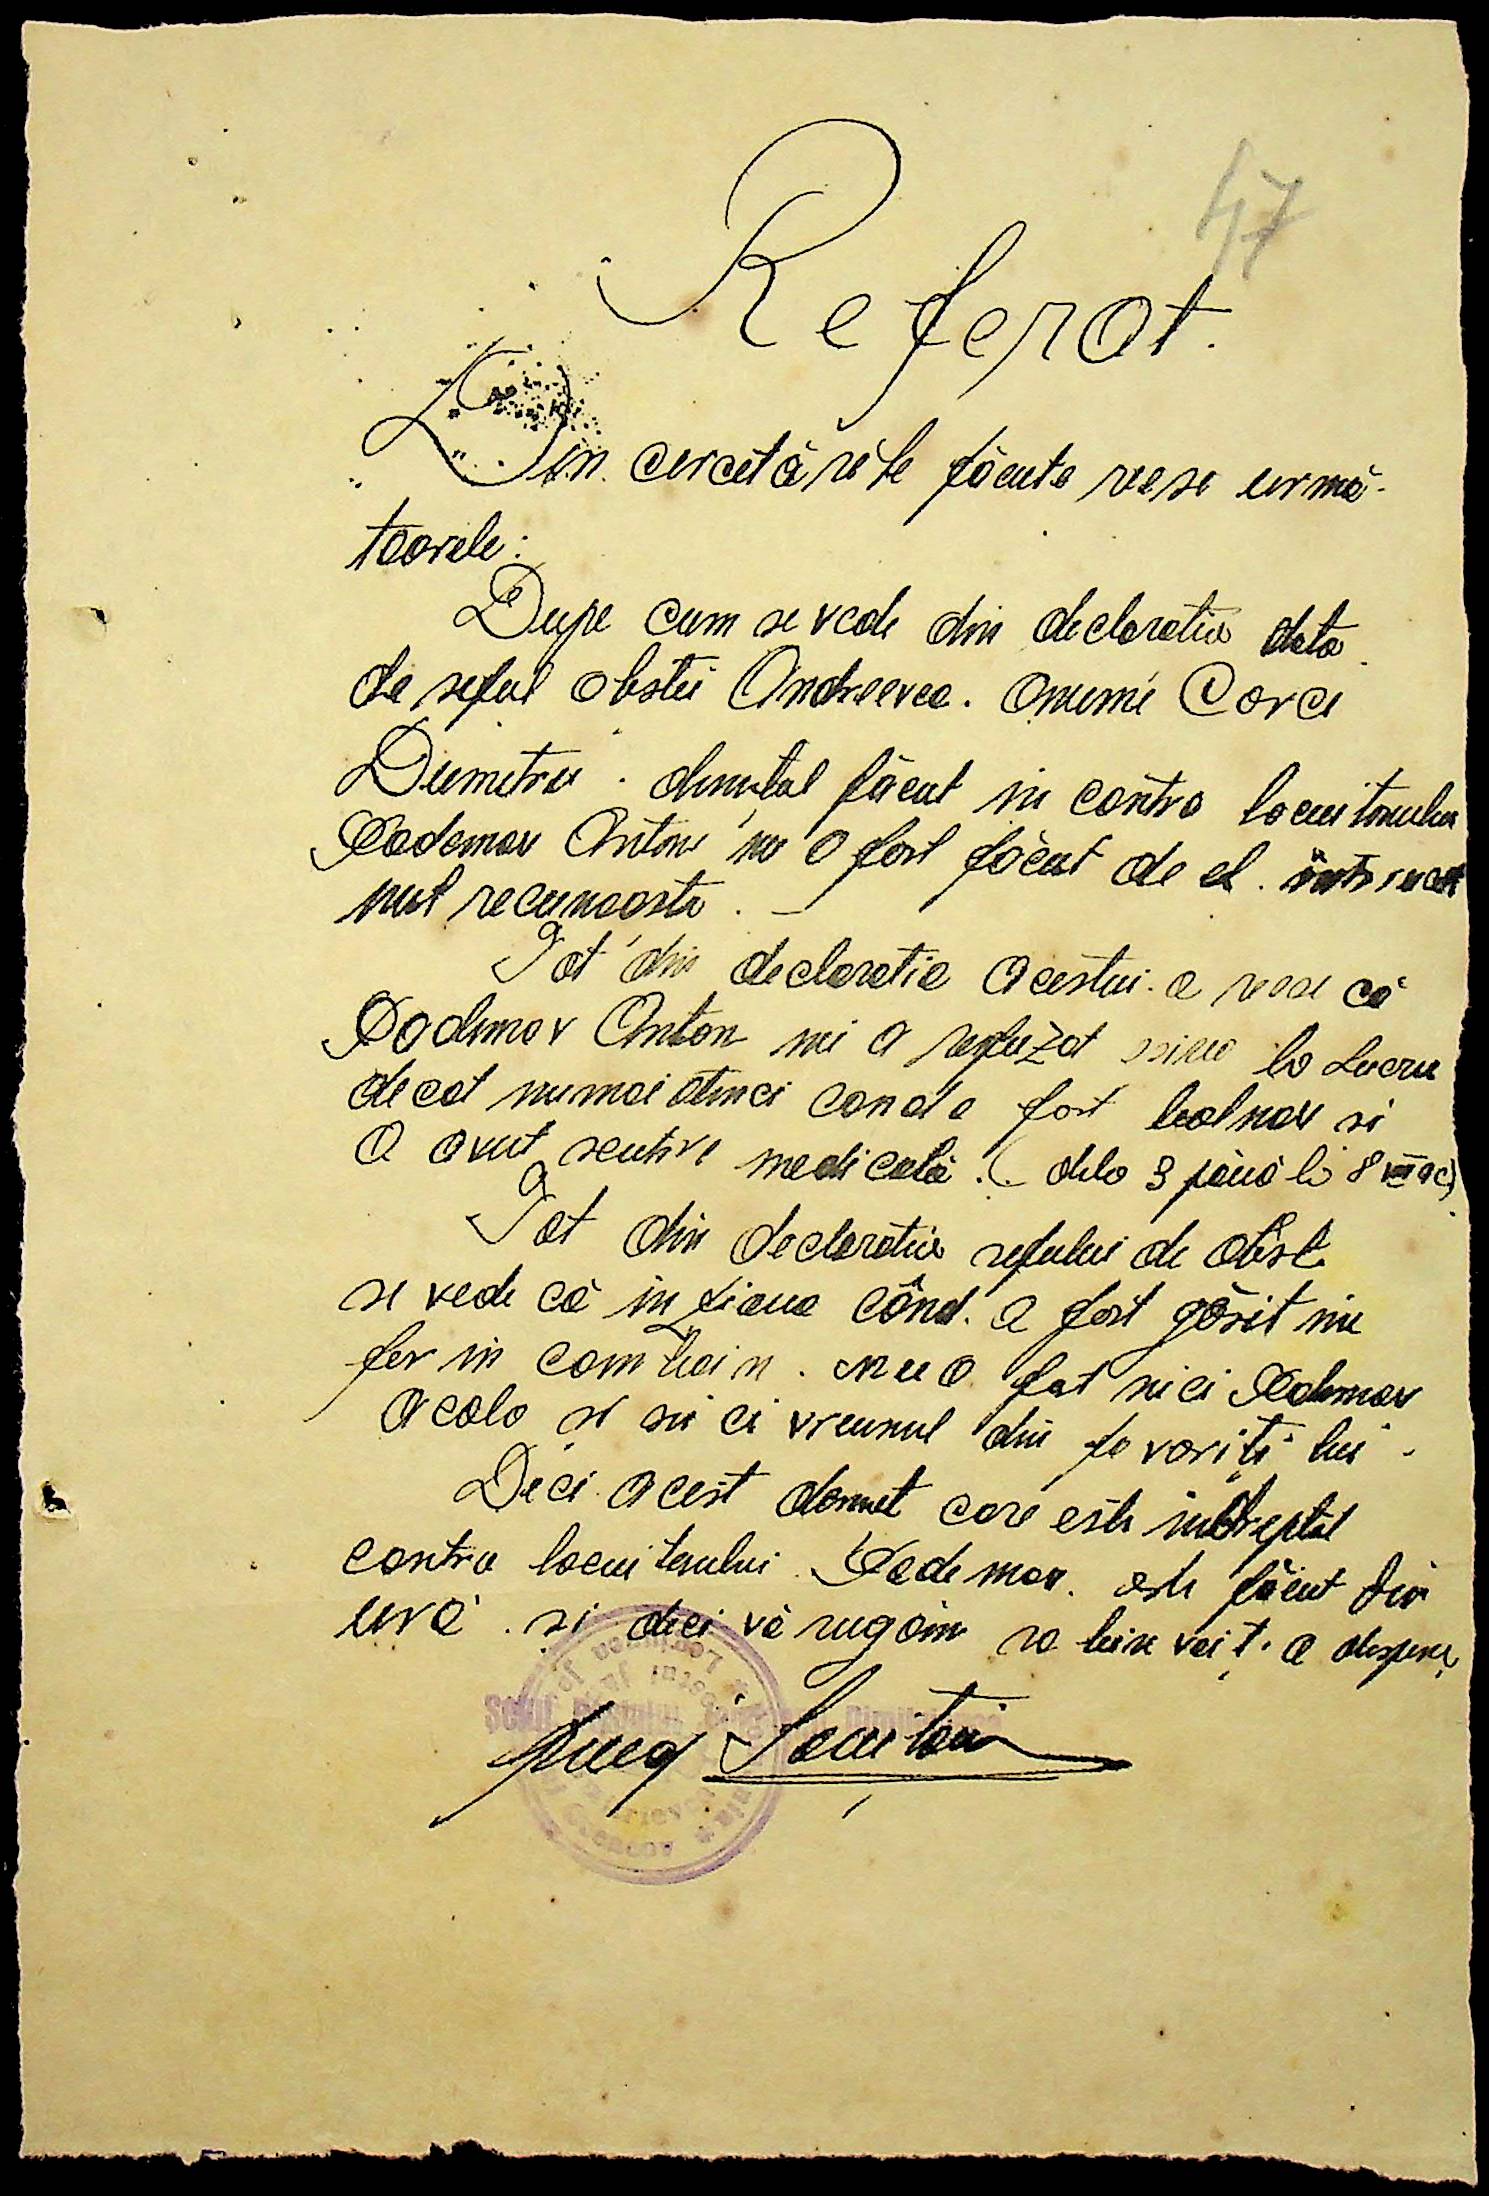 47
Referat.
Din cercetările făcute reese urmă-
toarele:
Dupe cum se vede din declaratia data
de seful obstei Andreevca. anume
Dumitru. denuntul făcut in contra locuitorului
Vademov Anton nu a fost făcut de el.
nul recunoaste. —
Tot din declaratia acestuia reese că
Vademov Anton nu a refuzat la Lucru
decat numai atunci cand a fost bolnav si
a avut scutire medicală. (dela 3 până la 8 VIII ac)
Tot din declaratia sefului de obste
se vede că in ziua când a fost găsit un
fer in combain. nu a fost nici Vademov
acolo si nici vreunul din favoriti lui.
Deci acest denunt care este indreptat
contra locuitorului Vademov. este făcut din
ură. si deci vă rugăm sa bine voiti a dispune